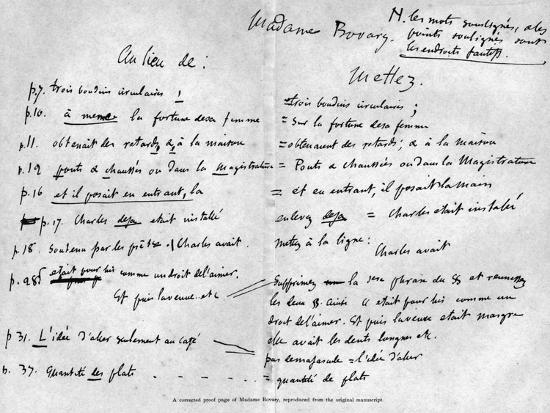 Madame Bovary.
N. les mots soulignés, et les
points soulignés sont
les endroits fautifs.
Au lieu de :
Mettez.
p.7. trois boudins circulaires !
= trois boudins circulaires ;
p.10. à meme la fortune de sa femme
= sur la fortune de sa femme
p.11. obtenait des retards, à, à la maison
= obtenaient des retards; à à la maison
p.12 ponts & chaussées ou dans la Magistrature
= Ponts & Chaussées ou dans la Magistrature
p.16 et il posait en entrant, la
= et en entrant, il posait la main
p.17. Charles deja etait installé
enlevez deja = Charles etait installé
p.18. Soutenu par les / Charles avait.
mettez à la ligne :
Charles avait
p. était pour lui comme un droit de l'aimer.
Et puis la veuve etc
Supprimez la 1ere phrase du § et reunissez
les deux §. Ainsi C etait pour lui comme un
droit de l'aimer. Et puis la veuve etait maigre
elle avait les dents longues etc.
p 31. L'idée d'aller seulement au café
pas de majuscule = l'idée d'aller
p. 37. Quantité des plats
quantité de plats
A corrected proof page of Madame Bovary, reproduced from the original manuscript.